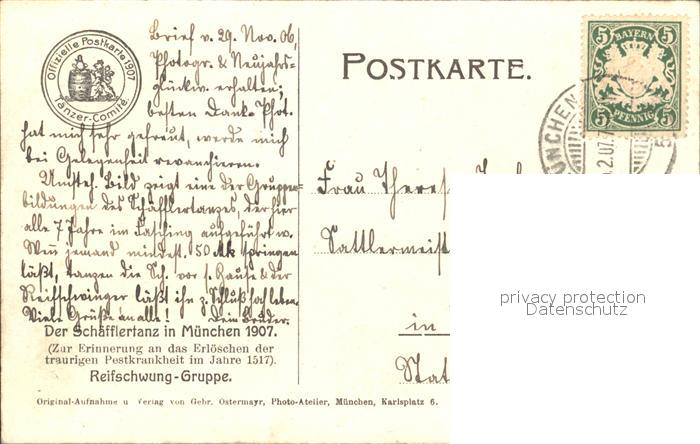 Offizielle Postkarte 1907
Tänzer-Comité.
Brief v. 29. Nov. 06,
Photogr. & Neujahrs-
glückw. erhalten;
besten Dank. Phot.
hat mich sehr gefreut, werde mich
bei Gelegenheit revanchieren.
Umsteh. Bild zeigt eine der Gruppen-
bildungen des Schäfflertanzes, der hier
alle 7 Jahre im Fasching aufgeführt w.
Wenn jemand mindest. 50 Mk springen
läßt, tanzen die Sch. vor s. Hause & der
Reifschwinger läßt ihn z. Schluß hochleben.
Viele Grüße an alle! Dein Bruder.
Der Schäfflertanz in München 1907.
(Zur Erinnerung an das Erlöschen der
traurigen Pestkrankheit im Jahre 1517).
Reifschwung-Gruppe.
Original-Aufnahme u Verlag von Gebr. Ostermayr, Photo-Atelier, München, Karlsplatz 6.
POSTKARTE.
5 BAYERN 5
5 PFENNIG 5
2.07
Frau Theres
Sattlermeist
in
Stat
privacy protection
Datenschutz